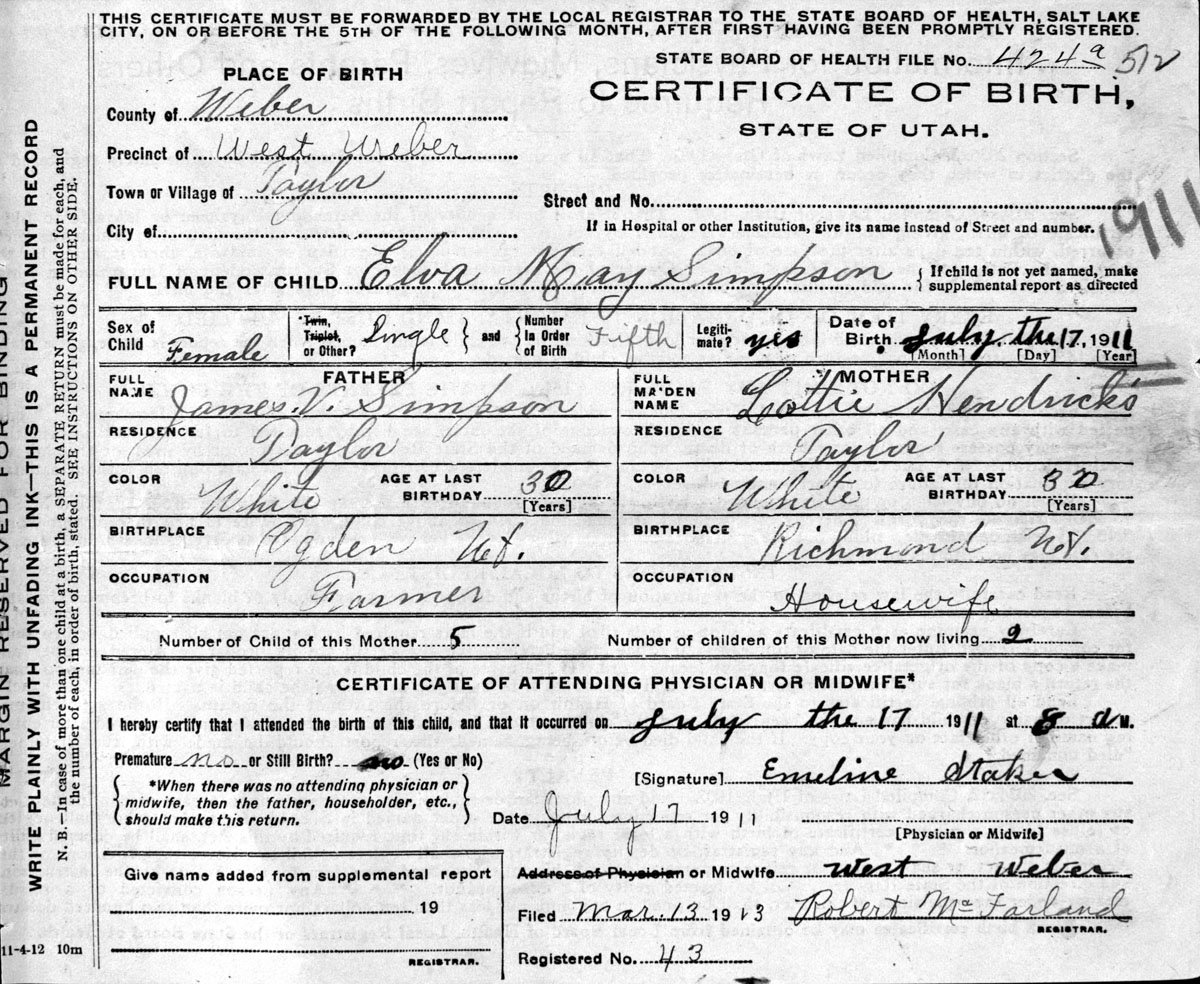 THIS CERTIFICATE MUST BE FORWARDED BY THE LOCAL REGISTRAR TO THE STATE BOARD OF HEALTH, SALT LAKE
CITY, ON OR BEFORE THE 5TH OF THE FOLLOWING MONTH, AFTER FIRST HAVING BEEN PROMPTLY REGISTERED.
STATE BOARD OF HEALTH FILE No. 424a 512
PLACE OF BIRTH
CERTIFICATE OF BIRTH,
STATE OF UTAH.
County of Weber
Precinct of West Weber
Town or Village of Taylor
Street and No.
City of
If in Hospital or other Institution, give its name instead of Street and number.
1911
FULL NAME OF CHILD Elva May Simpson { If child is not yet named, make
supplemental report as directed
Sex of Child Female
Twin, Triplet, or Other? Single } and { Number in Order of Birth Fifth
Legitimate? yes
Date of Birth July the 17, 1911
[Month] [Day] [Year]
FATHER
FULL NAME James. V. Simpson
RESIDENCE Taylor
COLOR White AGE AT LAST BIRTHDAY 30 [Years]
BIRTHPLACE Ogden Ut.
OCCUPATION Farmer
MOTHER
FULL MAIDEN NAME Lottie Hendricks
RESIDENCE Taylor
COLOR White AGE AT LAST BIRTHDAY [Years]
BIRTHPLACE Richmond Ut.
OCCUPATION Housewife
Number of Child of this Mother 5 Number of children of this Mother now living 2
CERTIFICATE OF ATTENDING PHYSICIAN OR MIDWIFE*
I hereby certify that I attended the birth of this child, and that it occurred on July the 17 1911 at 8 M.
Premature no or Still Birth? no (Yes or No)
*When there was no attending physician or
midwife, then the father, householder, etc.,
should make this return.
[Signature] Emeline Staker
Date July 17 1911
[Physician or Midwife]
Address of Physician or Midwife West Weber
Give name added from supplemental report
19
REGISTRAR.
Filed Mar. 13 1913 Robert McFarland
REGISTRAR.
Registered No. 43
11-4-12 10m
MARGIN RESERVED FOR BINDING
WRITE PLAINLY WITH UNFADING INK—THIS IS A PERMANENT RECORD
N. B.—In case of more than one child at a birth, a SEPARATE RETURN must be made for each, and
the number of each, in order of birth, stated. SEE INSTRUCTIONS ON OTHER SIDE.